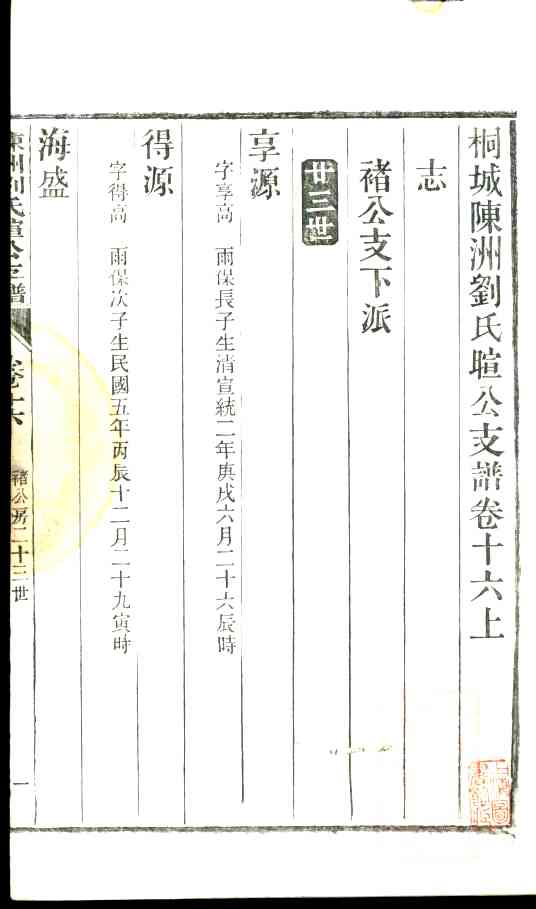 桐城陳洲劉氏暄公支譜卷十六上
志
褚公支下派
廿三世
享源
字享高　雨保長子生清宣統二年庚戌六月二十六辰時
得源
字得高　雨保次子生民國五年丙辰十二月二十九寅時
海盛
陳洲劉氏暄公支譜
卷十六
褚公房二十三世
一